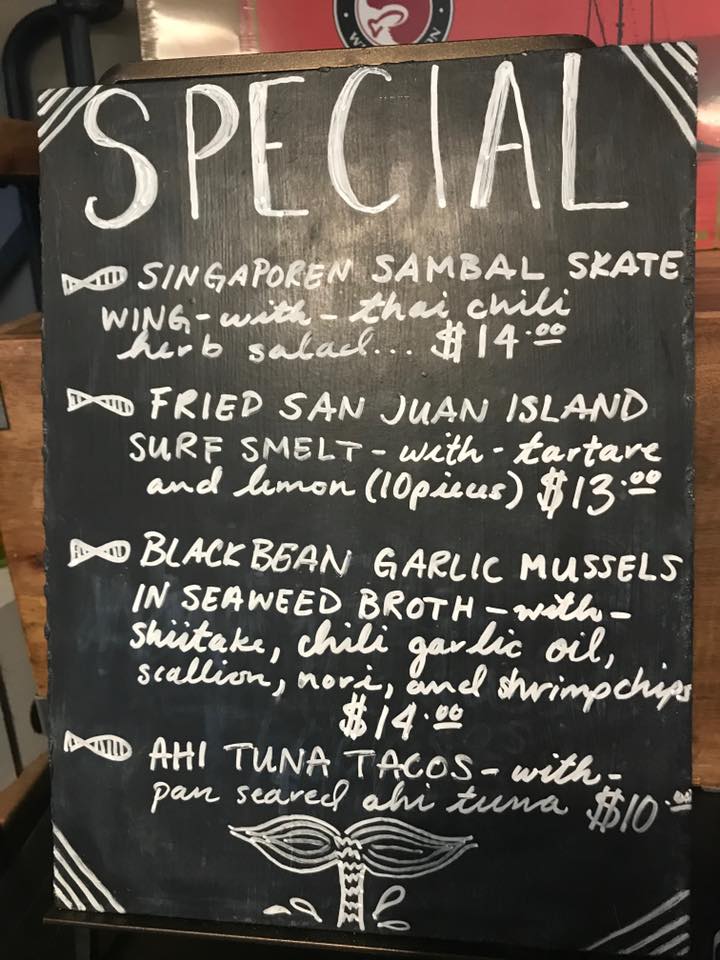 SPECIAL
SINGAPOREN SAMBAL SKATE
WING - with - thai chili
herb salad... $14.00
FRIED SAN JUAN ISLAND
SURF SMELT - with - tartare
and lemon (10 pieces) $13.00
BLACK BEAN GARLIC MUSSELS
IN SEAWEED BROTH - with -
shiitake, chili garlic oil,
scallion, nori, and shrimp chips
$14.00
AHI TUNA TACOS - with -
pan seared ahi tuna $10.00